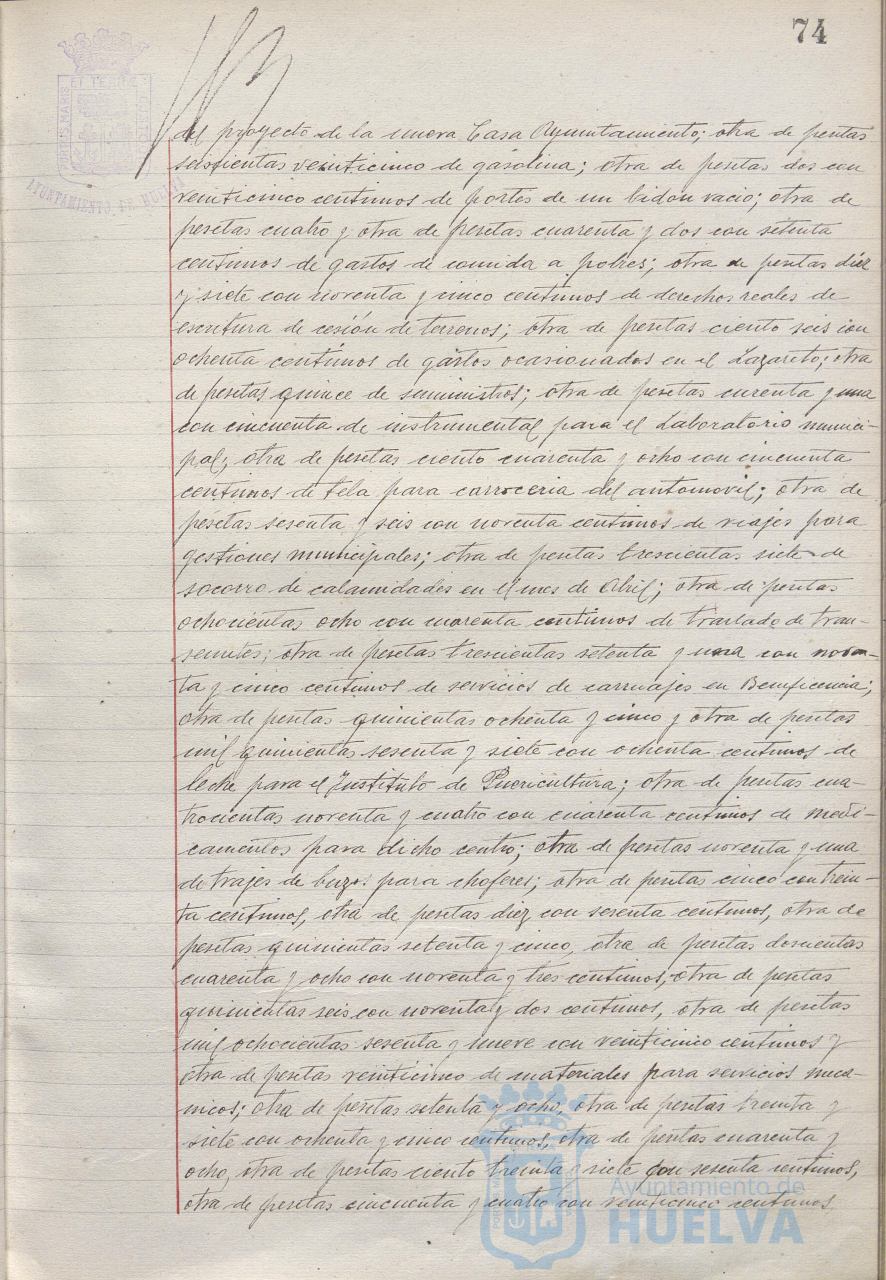 74
PORTUS MARIS
ET TERRE
CUSTODIA
AYUNTAMIENTO DE HUELVA
del proyecto de la nueva Casa Ayuntamiento; otra de pesetas
seiscientas veinticinco de gasolina; otra de pesetas dos con
veinticinco centimos de portes de un bidon vacio; otra de
pesetas cuatro y otra de pesetas cuarenta y dos con setenta
centimos de gastos de comida a pobres; otra de pesetas diez
y siete con noventa y cinco centimos de derechos reales de
escritura de cesión de terrenos; otra de pesetas ciento seis con
ochenta centimos de gastos ocasionados en el Lazareto; otra
de pesetas quince de suministros; otra de pesetas curenta y una
con cincuenta de instrumental para el Laboratorio munici-
pal, otra de pesetas ciento cuarenta y ocho con cincuenta
centimos de tela para carroceria del automovil; otra de
pesetas sesenta y seis con noventa centimos de viajes para
gestiones municipales; otra de pesetas trescientas siete de
socorro de calamidades en el mes de Abril; otra de pesetas
ochocientas ocho con cuarenta centimos de traslado de tran-
seuntes; otra de pesetas trescientas setenta y una con noven-
ta y cinco centimos de servicios de carruajes en Beneficencia;
otra de pesetas quinientas ochenta y cinco y otra de pesetas
mil quinientas sesenta y siete con ochenta centimos de
leche para el Instituto de Puericultura; otra de pesetas cua-
trocientas noventa y cuatro con cuarenta centimos de medi-
camentos para dicho centro; otra de pesetas noventa y una
de trajes de buzos para choferes; otra de pesetas cinco con trein-
ta centimos, otra de pesetas diez con sesenta centimos, otra de
pesetas quinientas setenta y cinco, otra de pesetas doscientas
cuarenta y ocho con noventa y tres centimos, otra de pesetas
quinientas seis con noventa y dos centimos, otra de pesetas
mil ochocientas sesenta y nueve con veinticinco centimos y
otra de pesetas veinticinco de materiales para servicios meca-
nicos; otra de pesetas setenta y ocho, otra de pesetas treinta y
siete con ochenta y cinco centimos, otra de pesetas cuarenta y
ocho, otra de pesetas ciento treinta y siete con sesenta centimos,
otra de pesetas cincuenta y cuatro con veinticinco centimos,
Ayuntamiento de
HUELVA